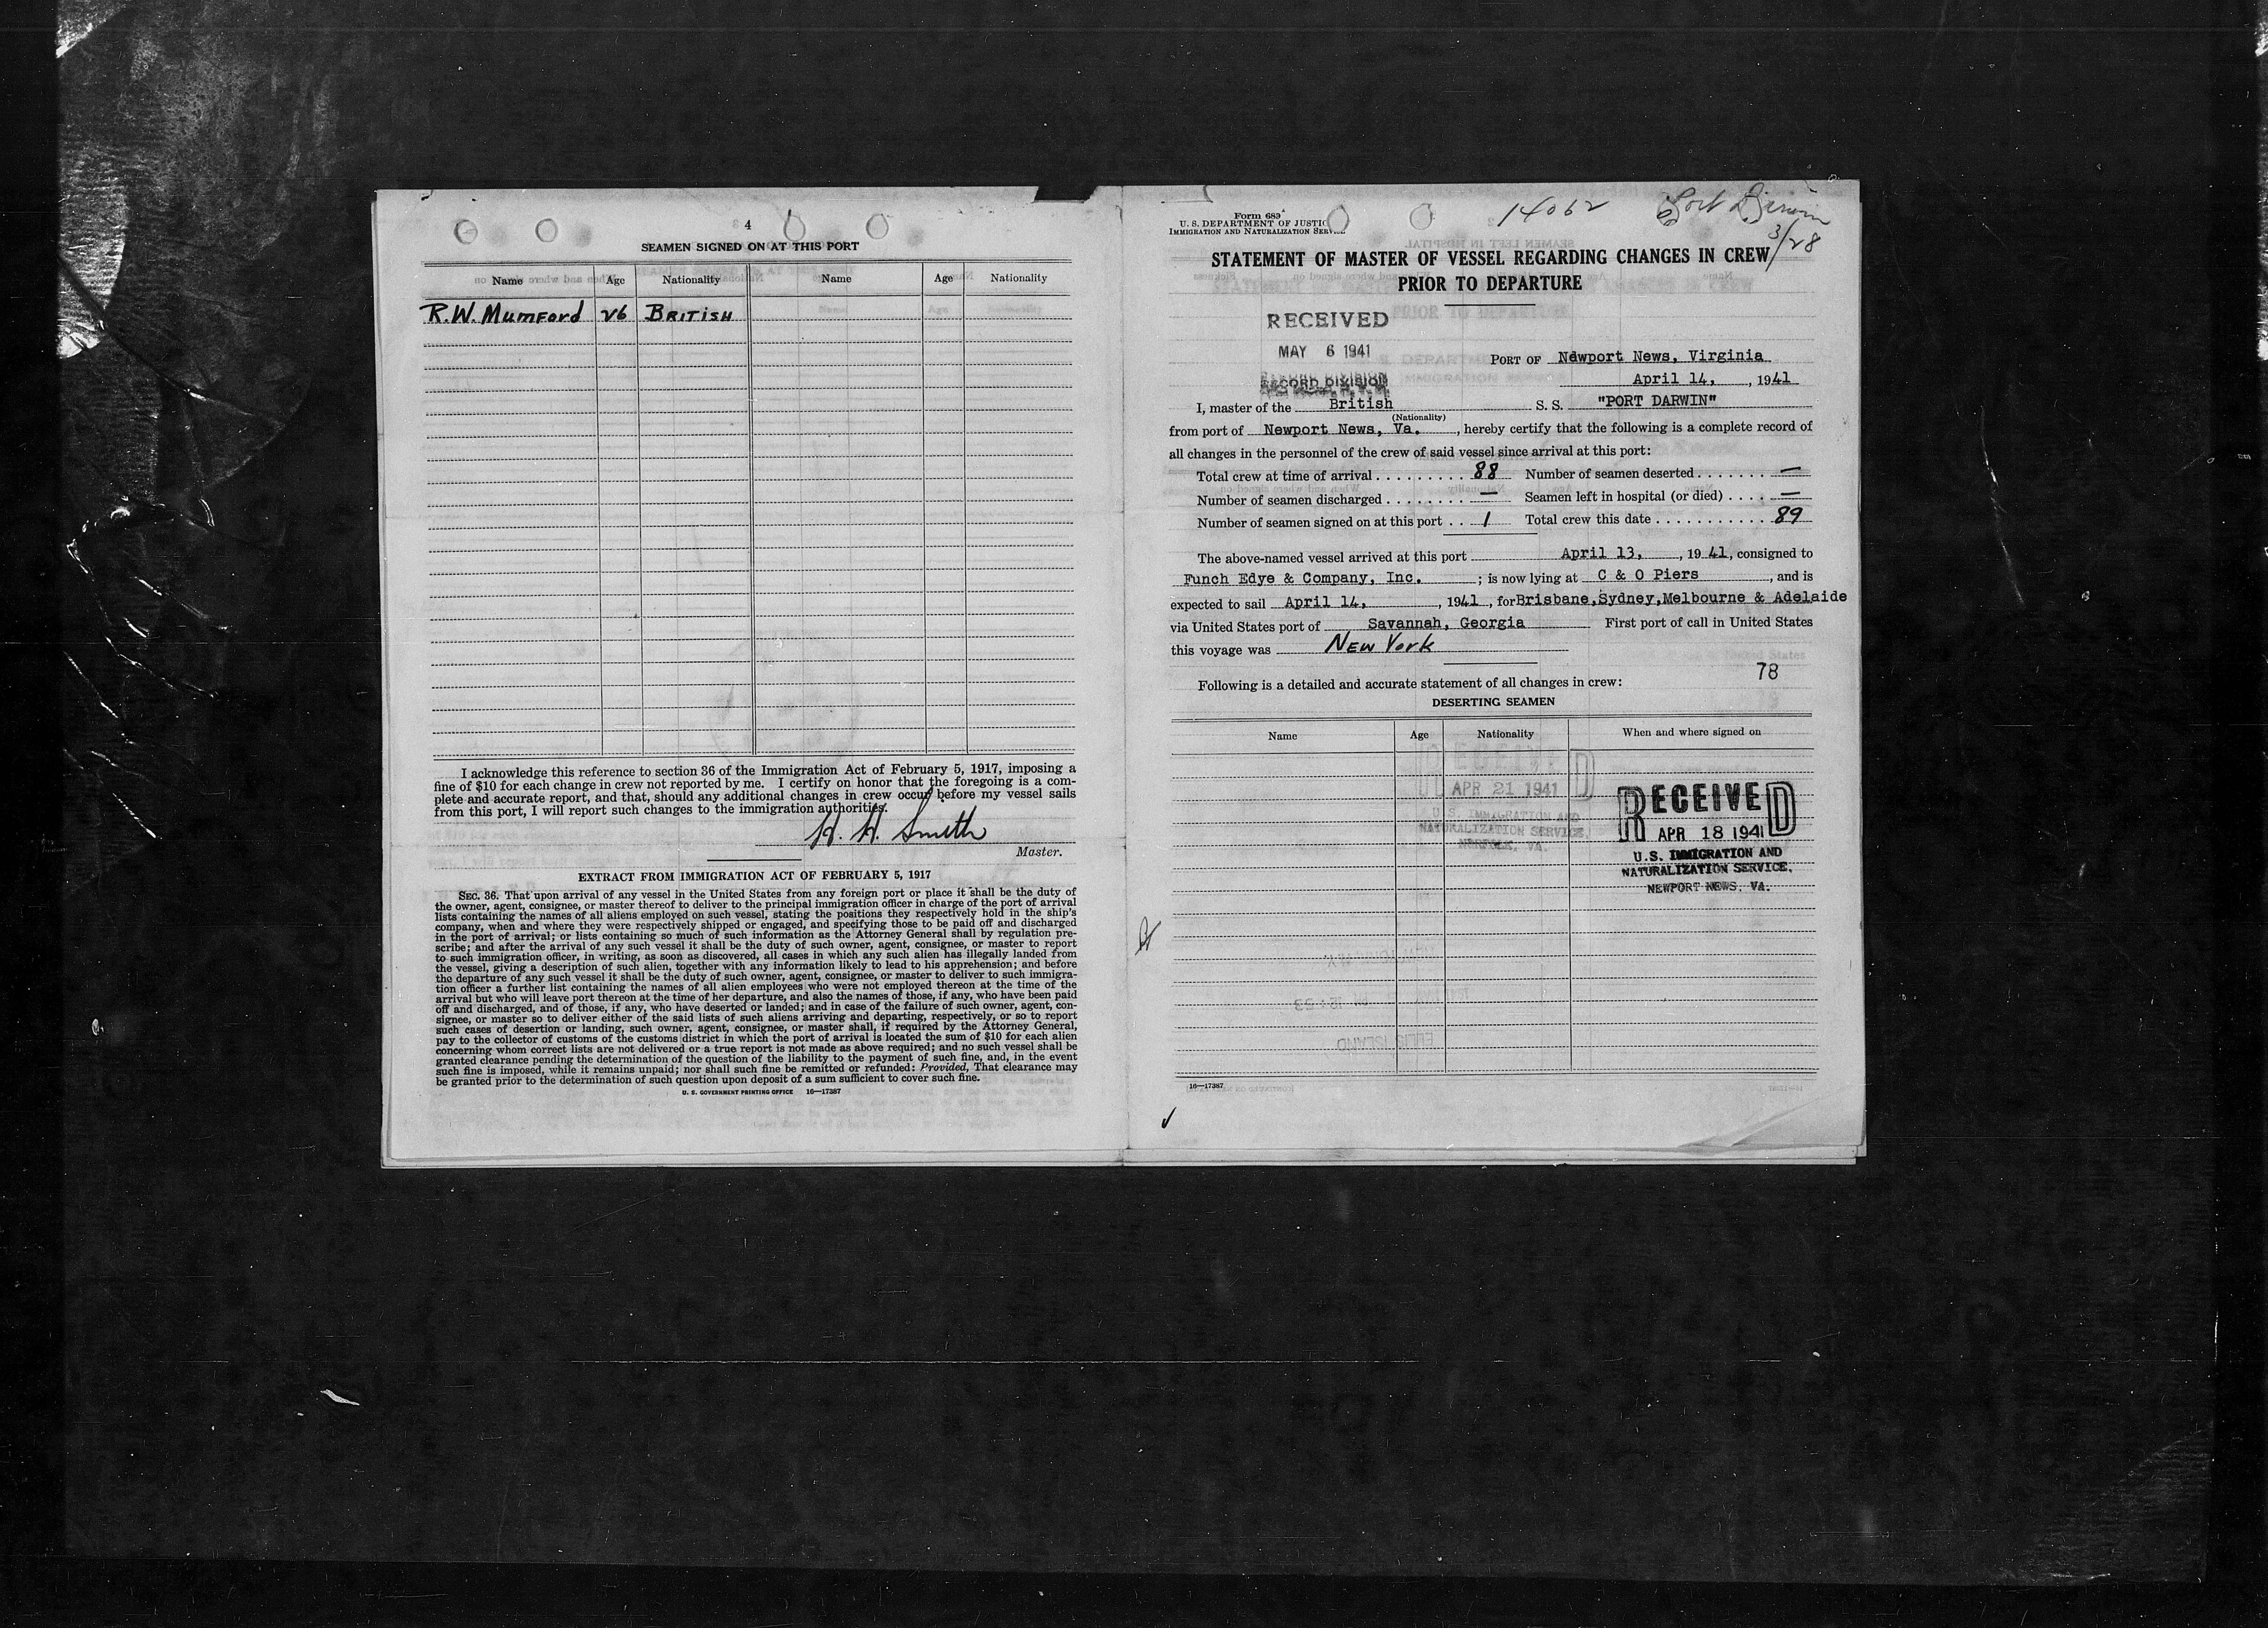 4
SEAMEN SIGNED ON AT THIS PORT
Name Age Nationality Name Age Nationality
R.W. Mumford 26 British
I acknowledge this reference to section 36 of the Immigration Act of February 5, 1917, imposing a
fine of $10 for each change in crew not reported by me. I certify on honor that the foregoing is a com-
plete and accurate report, and that, should any additional changes in crew occur before my vessel sails
from this port, I will report such changes to the immigration authorities.
H. H. Smith
Master.
EXTRACT FROM IMMIGRATION ACT OF FEBRUARY 5, 1917
SEC. 36. That upon arrival of any vessel in the United States from any foreign port or place it shall be the duty of
the owner, agent, consignee, or master thereof to deliver to the principal immigration officer in charge of the port of arrival
lists containing the names of all aliens employed on such vessel, stating the positions they respectively hold in the ship's
company, when and where they were respectively shipped or engaged, and specifying those to be paid off and discharged
in the port of arrival; or lists containing so much of such information as the Attorney General shall by regulation pre-
scribe; and after the arrival of any such vessel it shall be the duty of such owner, agent, consignee, or master to report
to such immigration officer, in writing, as soon as discovered, all cases in which any such alien has illegally landed from
the vessel, giving a description of such alien, together with any information likely to lead to his apprehension; and before
the departure of any such vessel it shall be the duty of such owner, agent, consignee, or master to deliver to such immigra-
tion officer a further list containing the names of all alien employees who were not employed thereon at the time of the
arrival but who will leave port thereon at the time of her departure, and also the names of those, if any, who have been paid
off and discharged, and of those, if any, who have deserted or landed; and in case of the failure of such owner, agent, con-
signee, or master so to deliver either of the said lists of such aliens arriving and departing, respectively, or so to report
such cases of desertion or landing, such owner, agent, consignee, or master shall, if required by the Attorney General,
pay to the collector of customs of the customs district in which the port of arrival is located the sum of $10 for each alien
concerning whom correct lists are not delivered or a true report is not made as above required; and no such vessel shall be
granted clearance pending the determination of the question of the liability to the payment of such fine, and, in the event
such fine is imposed, while it remains unpaid; nor shall such fine be remitted or refunded: Provided, That clearance may
be granted prior to the determination of such question upon deposit of a sum sufficient to cover such fine.
U. S. GOVERNMENT PRINTING OFFICE 16—17387
Form 683
U. S. DEPARTMENT OF JUSTIC
IMMIGRATION AND NATURALIZATION SERV
14062
Port Darwin
3/28
STATEMENT OF MASTER OF VESSEL REGARDING CHANGES IN CREW
PRIOR TO DEPARTURE
RECEIVED
MAY 6 1941
RECORD DIVISION
PORT OF Newport News, Virginia
April 14, , 1941
I, master of the British S. S. "PORT DARWIN"
(Nationality)
from port of Newport News, Va. , hereby certify that the following is a complete record of
all changes in the personnel of the crew of said vessel since arrival at this port:
Total crew at time of arrival . . . . . . . . . 88 Number of seamen deserted . . . . . . . —
Number of seamen discharged . . . . . . . . — Seamen left in hospital (or died) . . . . —
Number of seamen signed on at this port . . 1 Total crew this date . . . . . . . . . . . 89
The above-named vessel arrived at this port April 13, , 19 41, consigned to
Funch Edye & Company, Inc. ; is now lying at C & O Piers , and is
expected to sail April 14, , 1941 , for Brisbane,Sydney,Melbourne & Adelaide
via United States port of Savannah, Georgia First port of call in United States
this voyage was New York
78
Following is a detailed and accurate statement of all changes in crew:
DESERTING SEAMEN
Name Age Nationality When and where signed on
RECEIVED
APR 21 1941
U.S. IMMIGRATION AND
NATURALIZATION SERVICE,
NORFOLK, VA.
RECEIVED
APR 18 1941
U.S. IMMIGRATION AND
NATURALIZATION SERVICE,
NEWPORT NEWS, VA.
16—17387